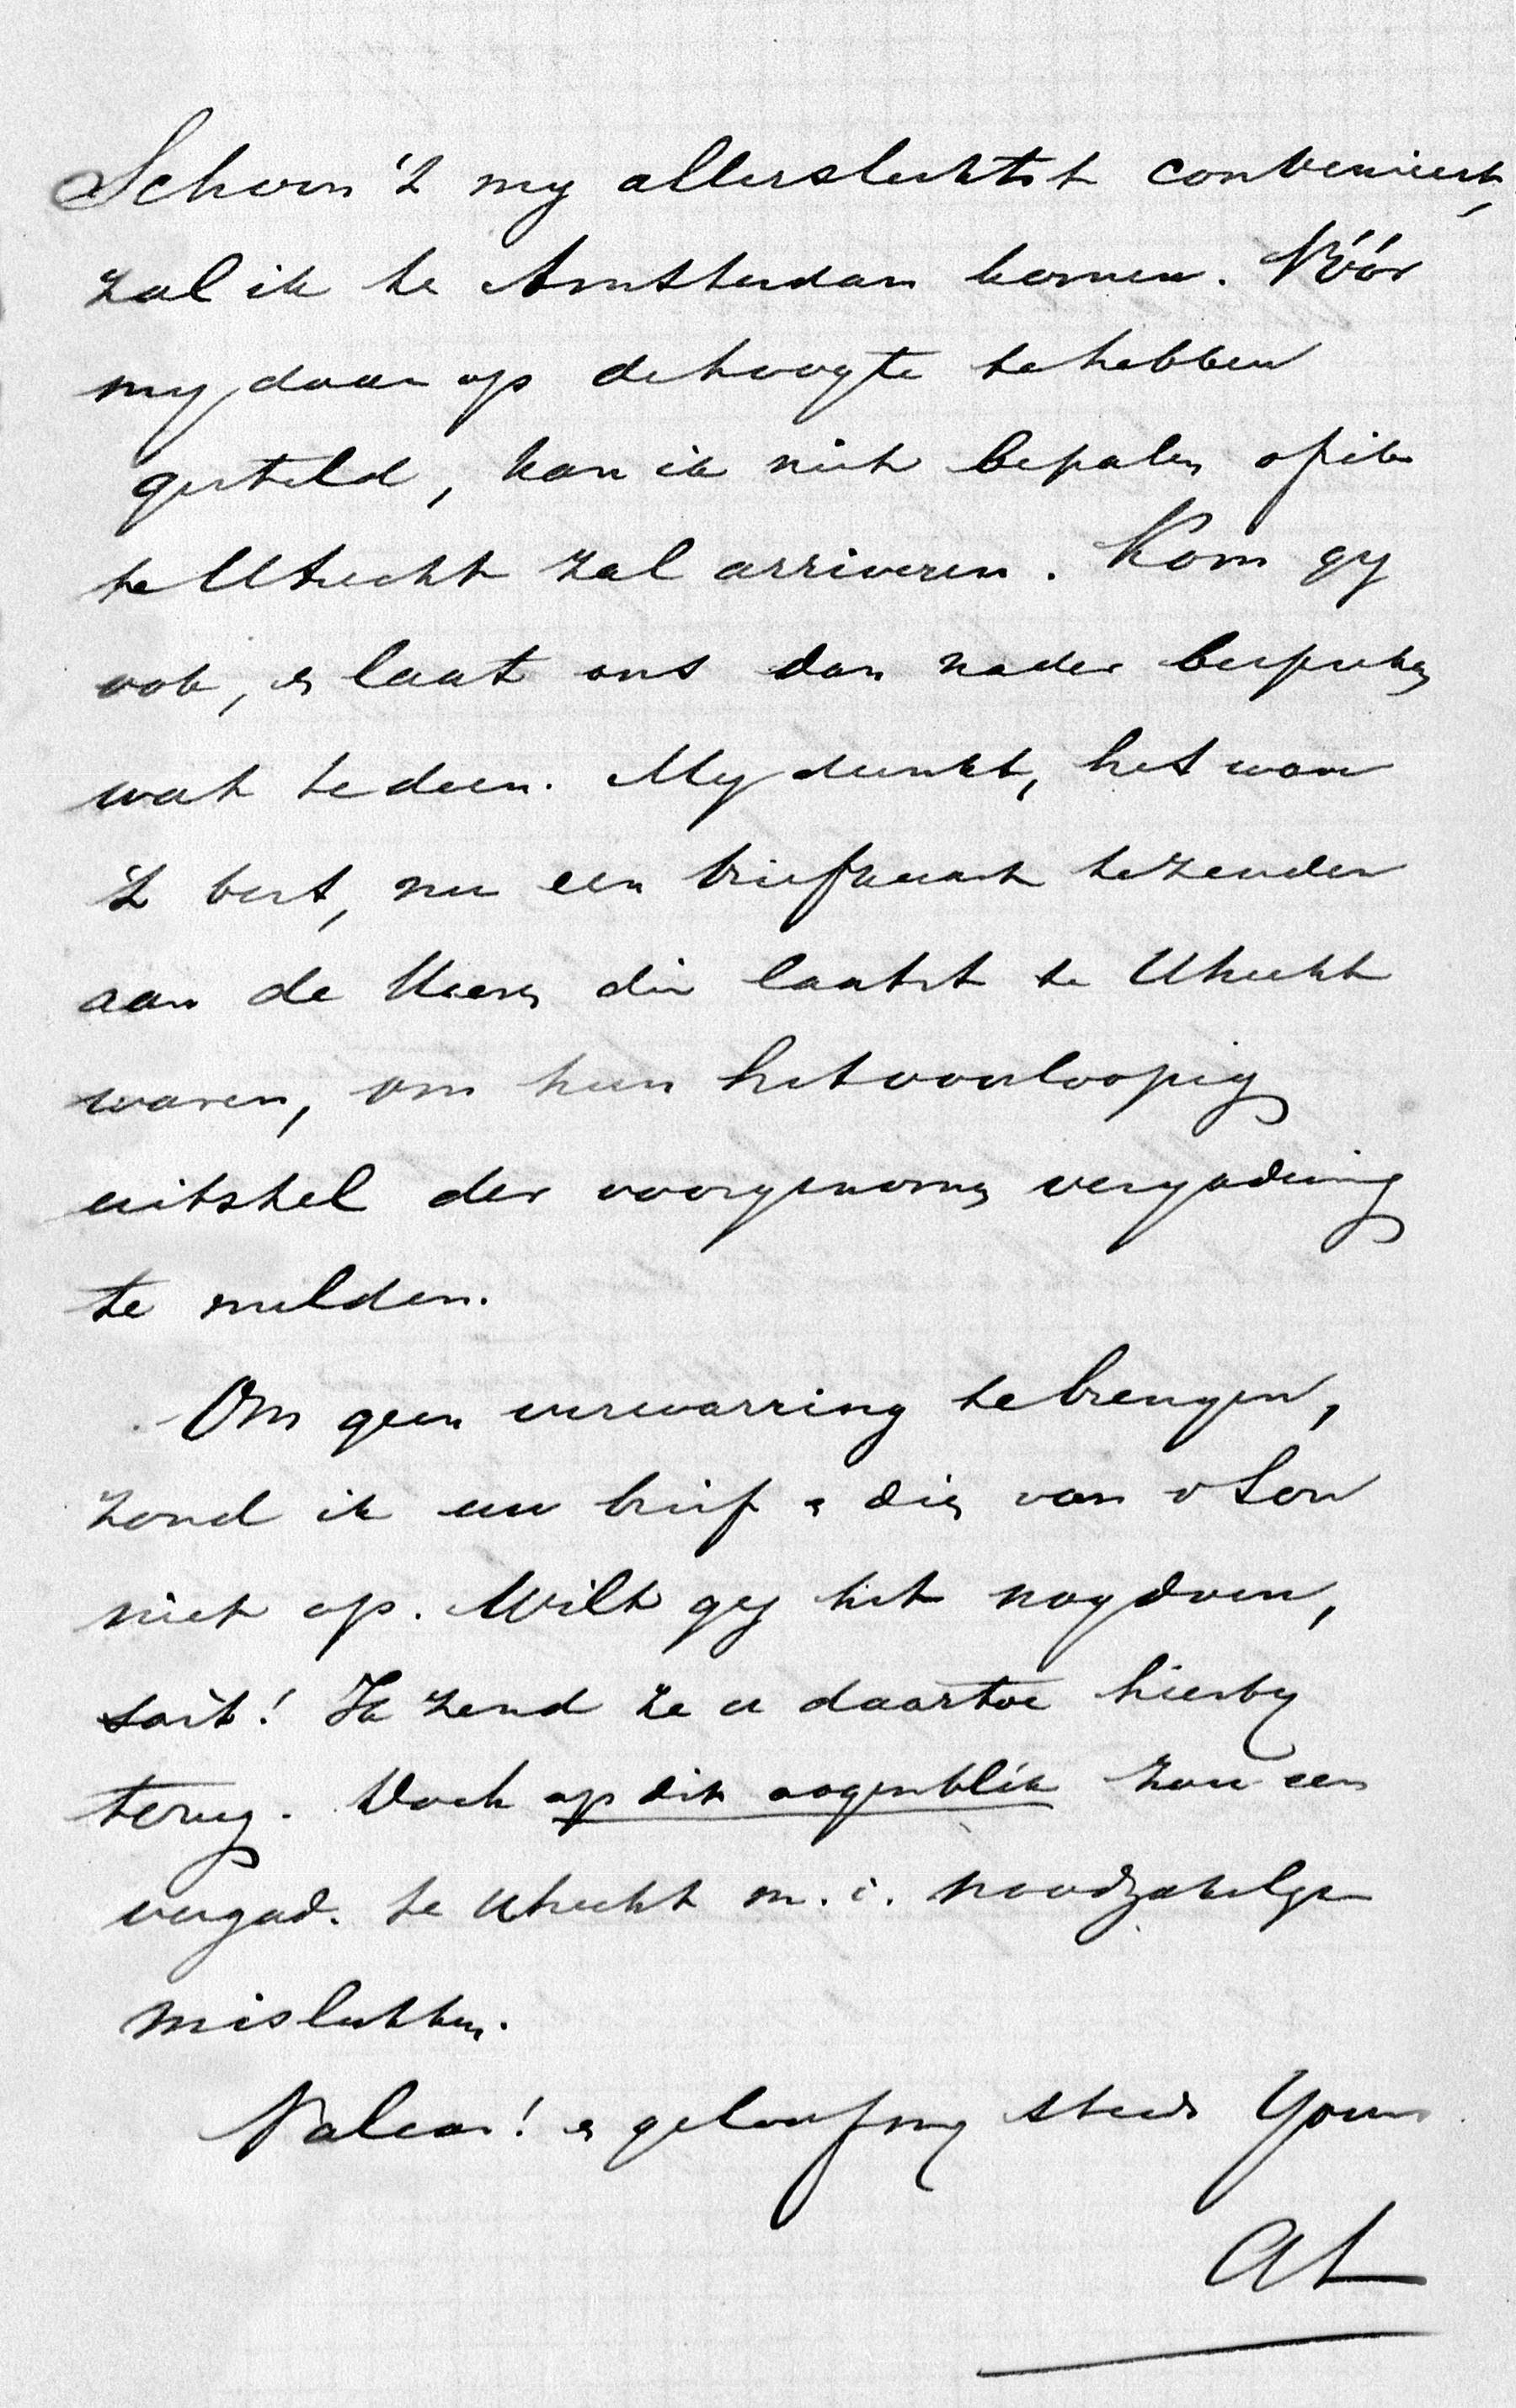 Schoon 't my allerslechtst convenieert,
zal ik te Amsterdam komen. Vóór
my daar op de hoogte te hebben
gesteld, kan ik niet bepalen of ik
te Utrecht zal arriveren. Kom gy
ook, en laat ons dan nader bespreken
wat te doen. My dunkt, het ware
't best, nu een briefkaart te zenden
aan de Heeren die laatst te Utrecht
waren, om hun het voorloopig
uitstel der voorgenomen vergadering
te melden.
Om geen verwarring te brengen,
zond ik uw brief en dien van v Son
niet op. Wilt gy het nog doen,
soit! Ik zend ze u daartoe hierby
terug. Doch op dit oogenblik zou een
vergad. te Utrecht m. i. noodzakelyk
mislukken.
Valeas! en geloof my steeds Yours